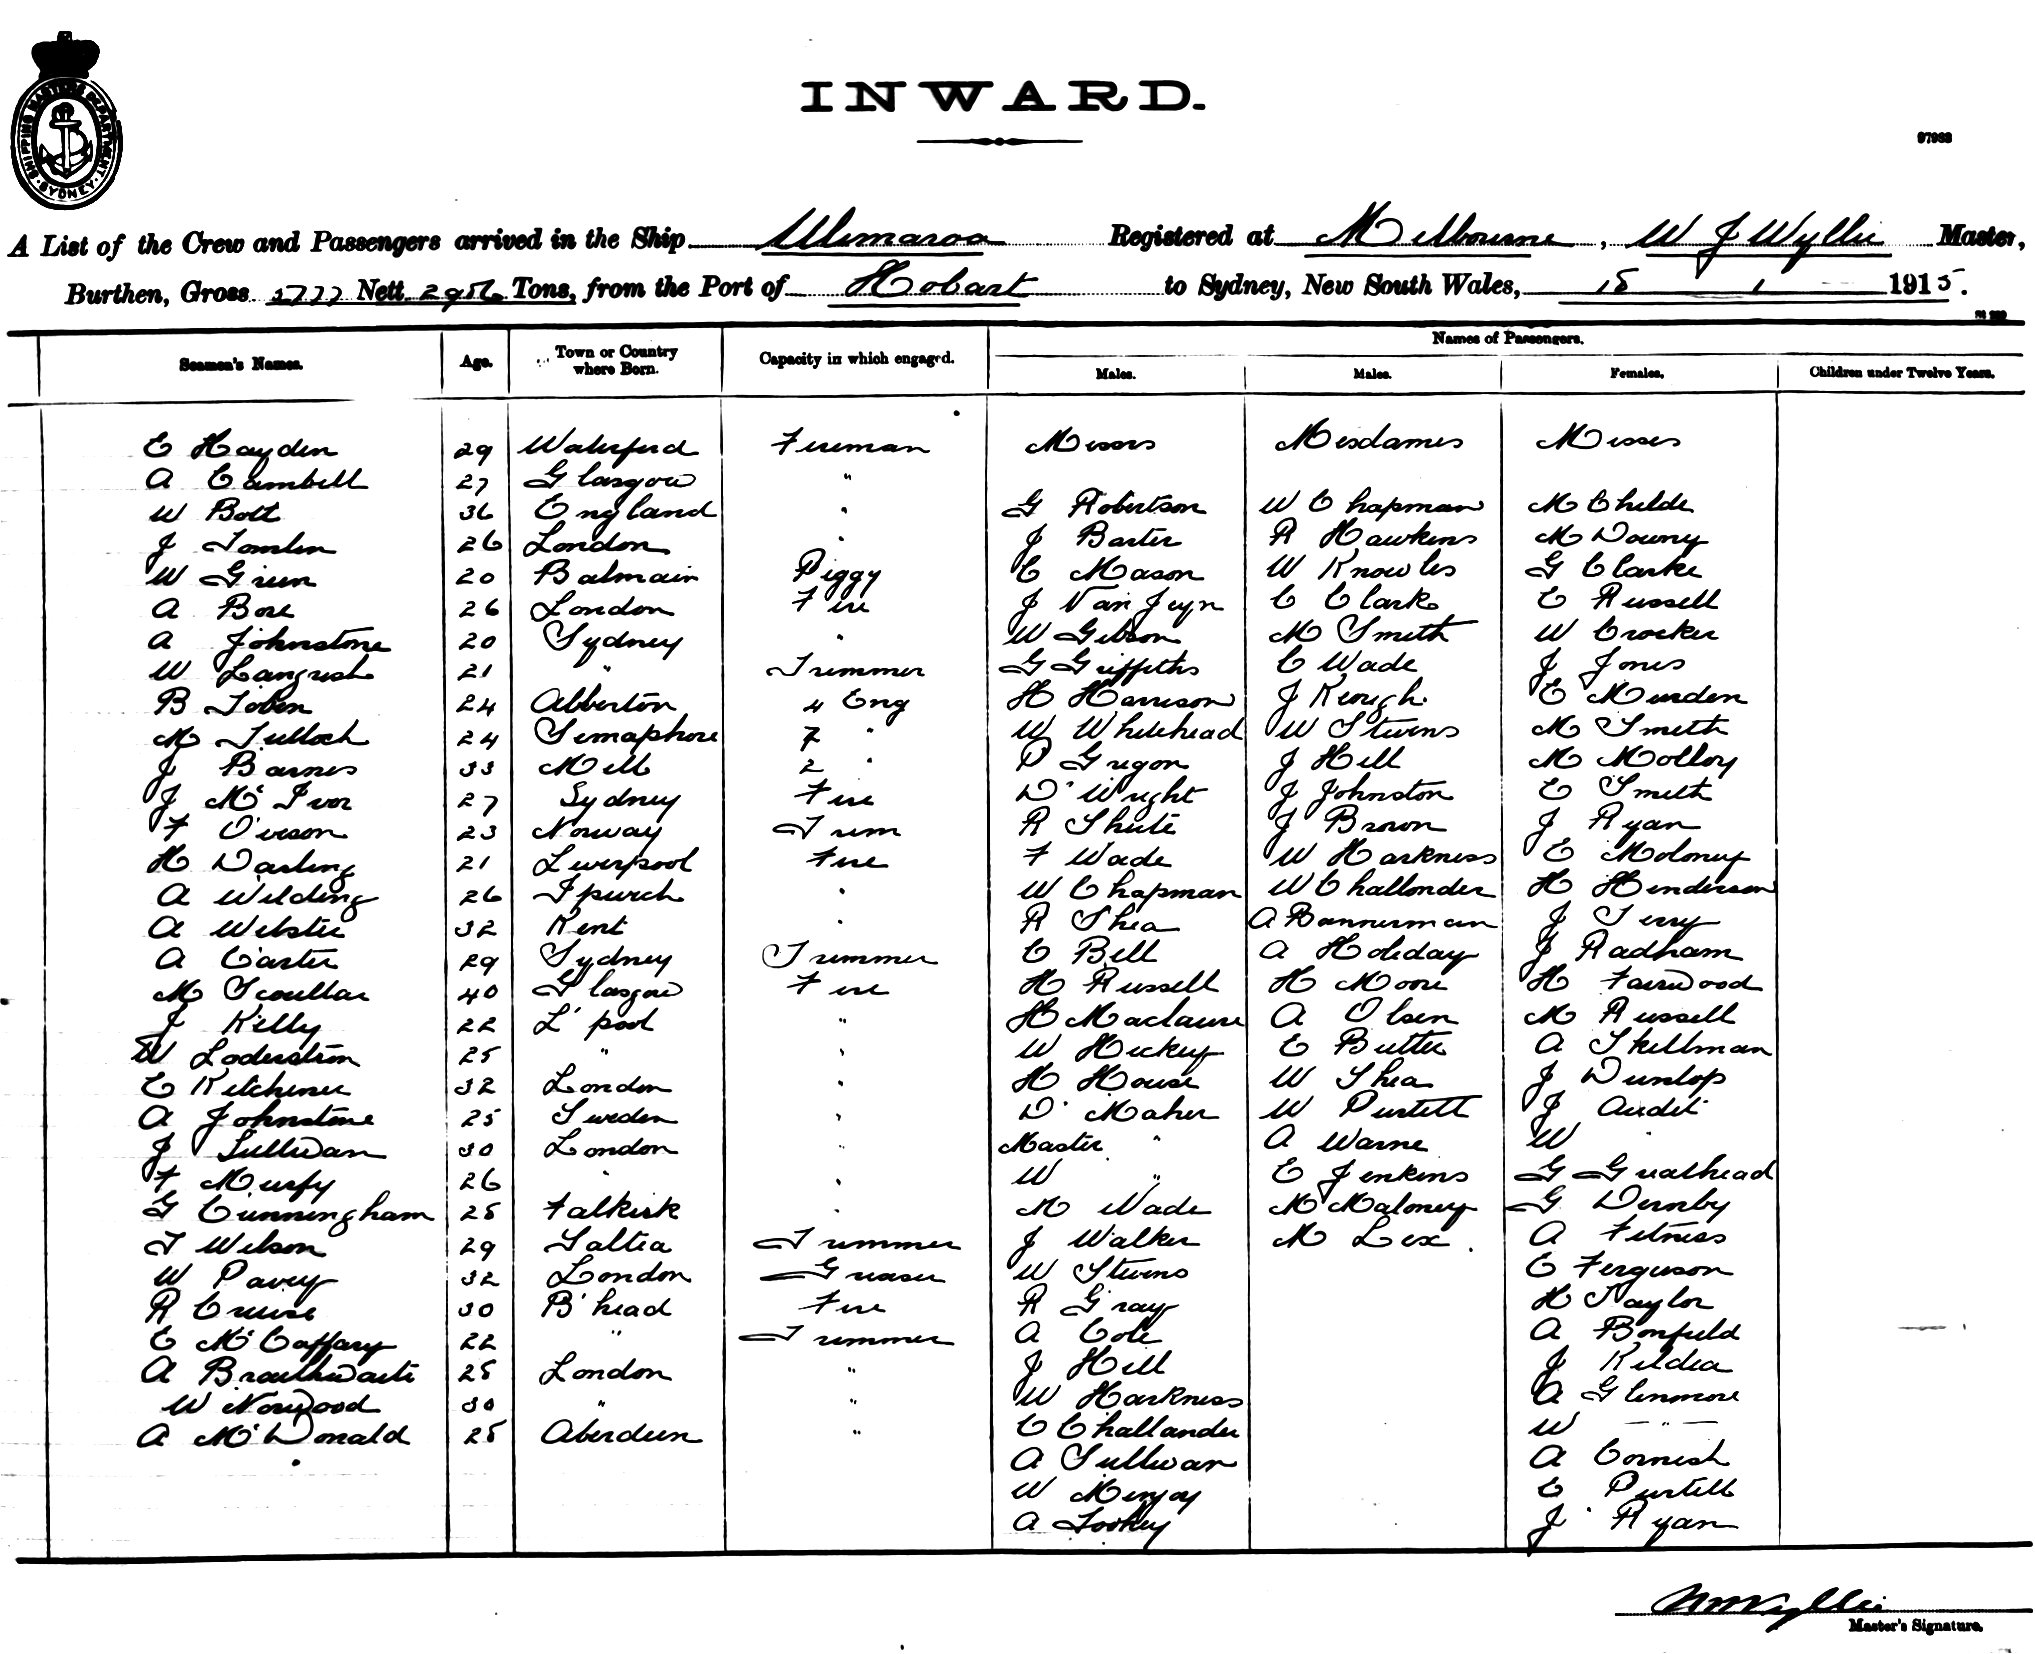 SHIPPING MASTERS DEPARTMENT. SYDNEY.
INWARD.
97933
A List of the Crew and Passengers arrived in the Ship Ulimaroa Registered at Melbourne, W J Wyllie Master,
Burthen, Gross 5777 Nett 2956 Tons, from the Port of Hobart to Sydney, New South Wales, 15 1 1915.
Seamen's Names. Age. Town or Country where Born. Capacity in which engaged. Names of Passengers.
Males. Males. Females. Children under Twelve Years.
E Hayden 29 Waterford Fireman Messrs Mesdames Misses
A Cambell 27 Glasgow "
W Bott 36 England " G Robertson W Chapman M Childe
J Tomlin 26 London " J Barter R Hawkins M Downy
W Green 20 Balmain Piggy C Mason W Knowles G Clarke
A Bore 26 London Fire J Van Jeyn C Clark E Russell
A Johnstone 20 Sydney " W Gibson M Smith W Crocker
W Langrish 21 " Trimmer G Griffiths C Wade J Jones
B Tobin 24 Abberton 4 Eng H Harrison J Keough E Murden
M Tulloch 24 Semaphore 7 " W Whitehead W Stevens M Smith
J Barnes 33 Melb 2 " P Gregon J Hill M Molloy
J McIvor 27 Sydney Fire D Wright J Johnston E Smith
F Overson 23 Norway Trim R Shute J Brown J Ryan
H Darling 21 Liverpool Fire F Wade W Harkness E Moloney
A Wilding 26 Ipswich " W Chapman W Challonder H Henderson
A Webster 32 Kent " R Shea A Bannerman J Terry
A Carter 29 Sydney Trimmer C Bell A Holiday J Radham
M Scoullar 40 Glasgow Fire H Russell H Moore H Fairwood
J Kelly 22 L'pool " H Maclaure A Olsen M Russell
W Loderstrom 25 " " W Hickey E Butler A Skellman
E Kitchener 32 London " H House W Shea J Dunlop
A Johnstone 25 Sweden " D Maher W Purtell J Audit
J Sullivan 30 London " Master " A Warne W "
F Murfy 26 " " W " E Jenkins G Greathead
G Cunningham 25 Falkirk " M Wade M Maloney G Dernby
T Wilson 29 Saltea Trimmer J Walker M Lex. A Fitness
W Pavey 32 London Greaser W Stevens E Ferguson
R Cruise 30 B'head Fire R Gray H Taylor
E McCaffary 22 " Trimmer A Cole A Bonfield
A Braithwaite 25 London " J Hill J Kildea
W Norwood 30 " " W Harkness A Glenmore
A McDonald 25 Aberdeen " C Challander W "
A Sullivan A Cornish
W Menjoy E Purtell
A Tookey J Ryan
WJWyllie
Master's Signature.